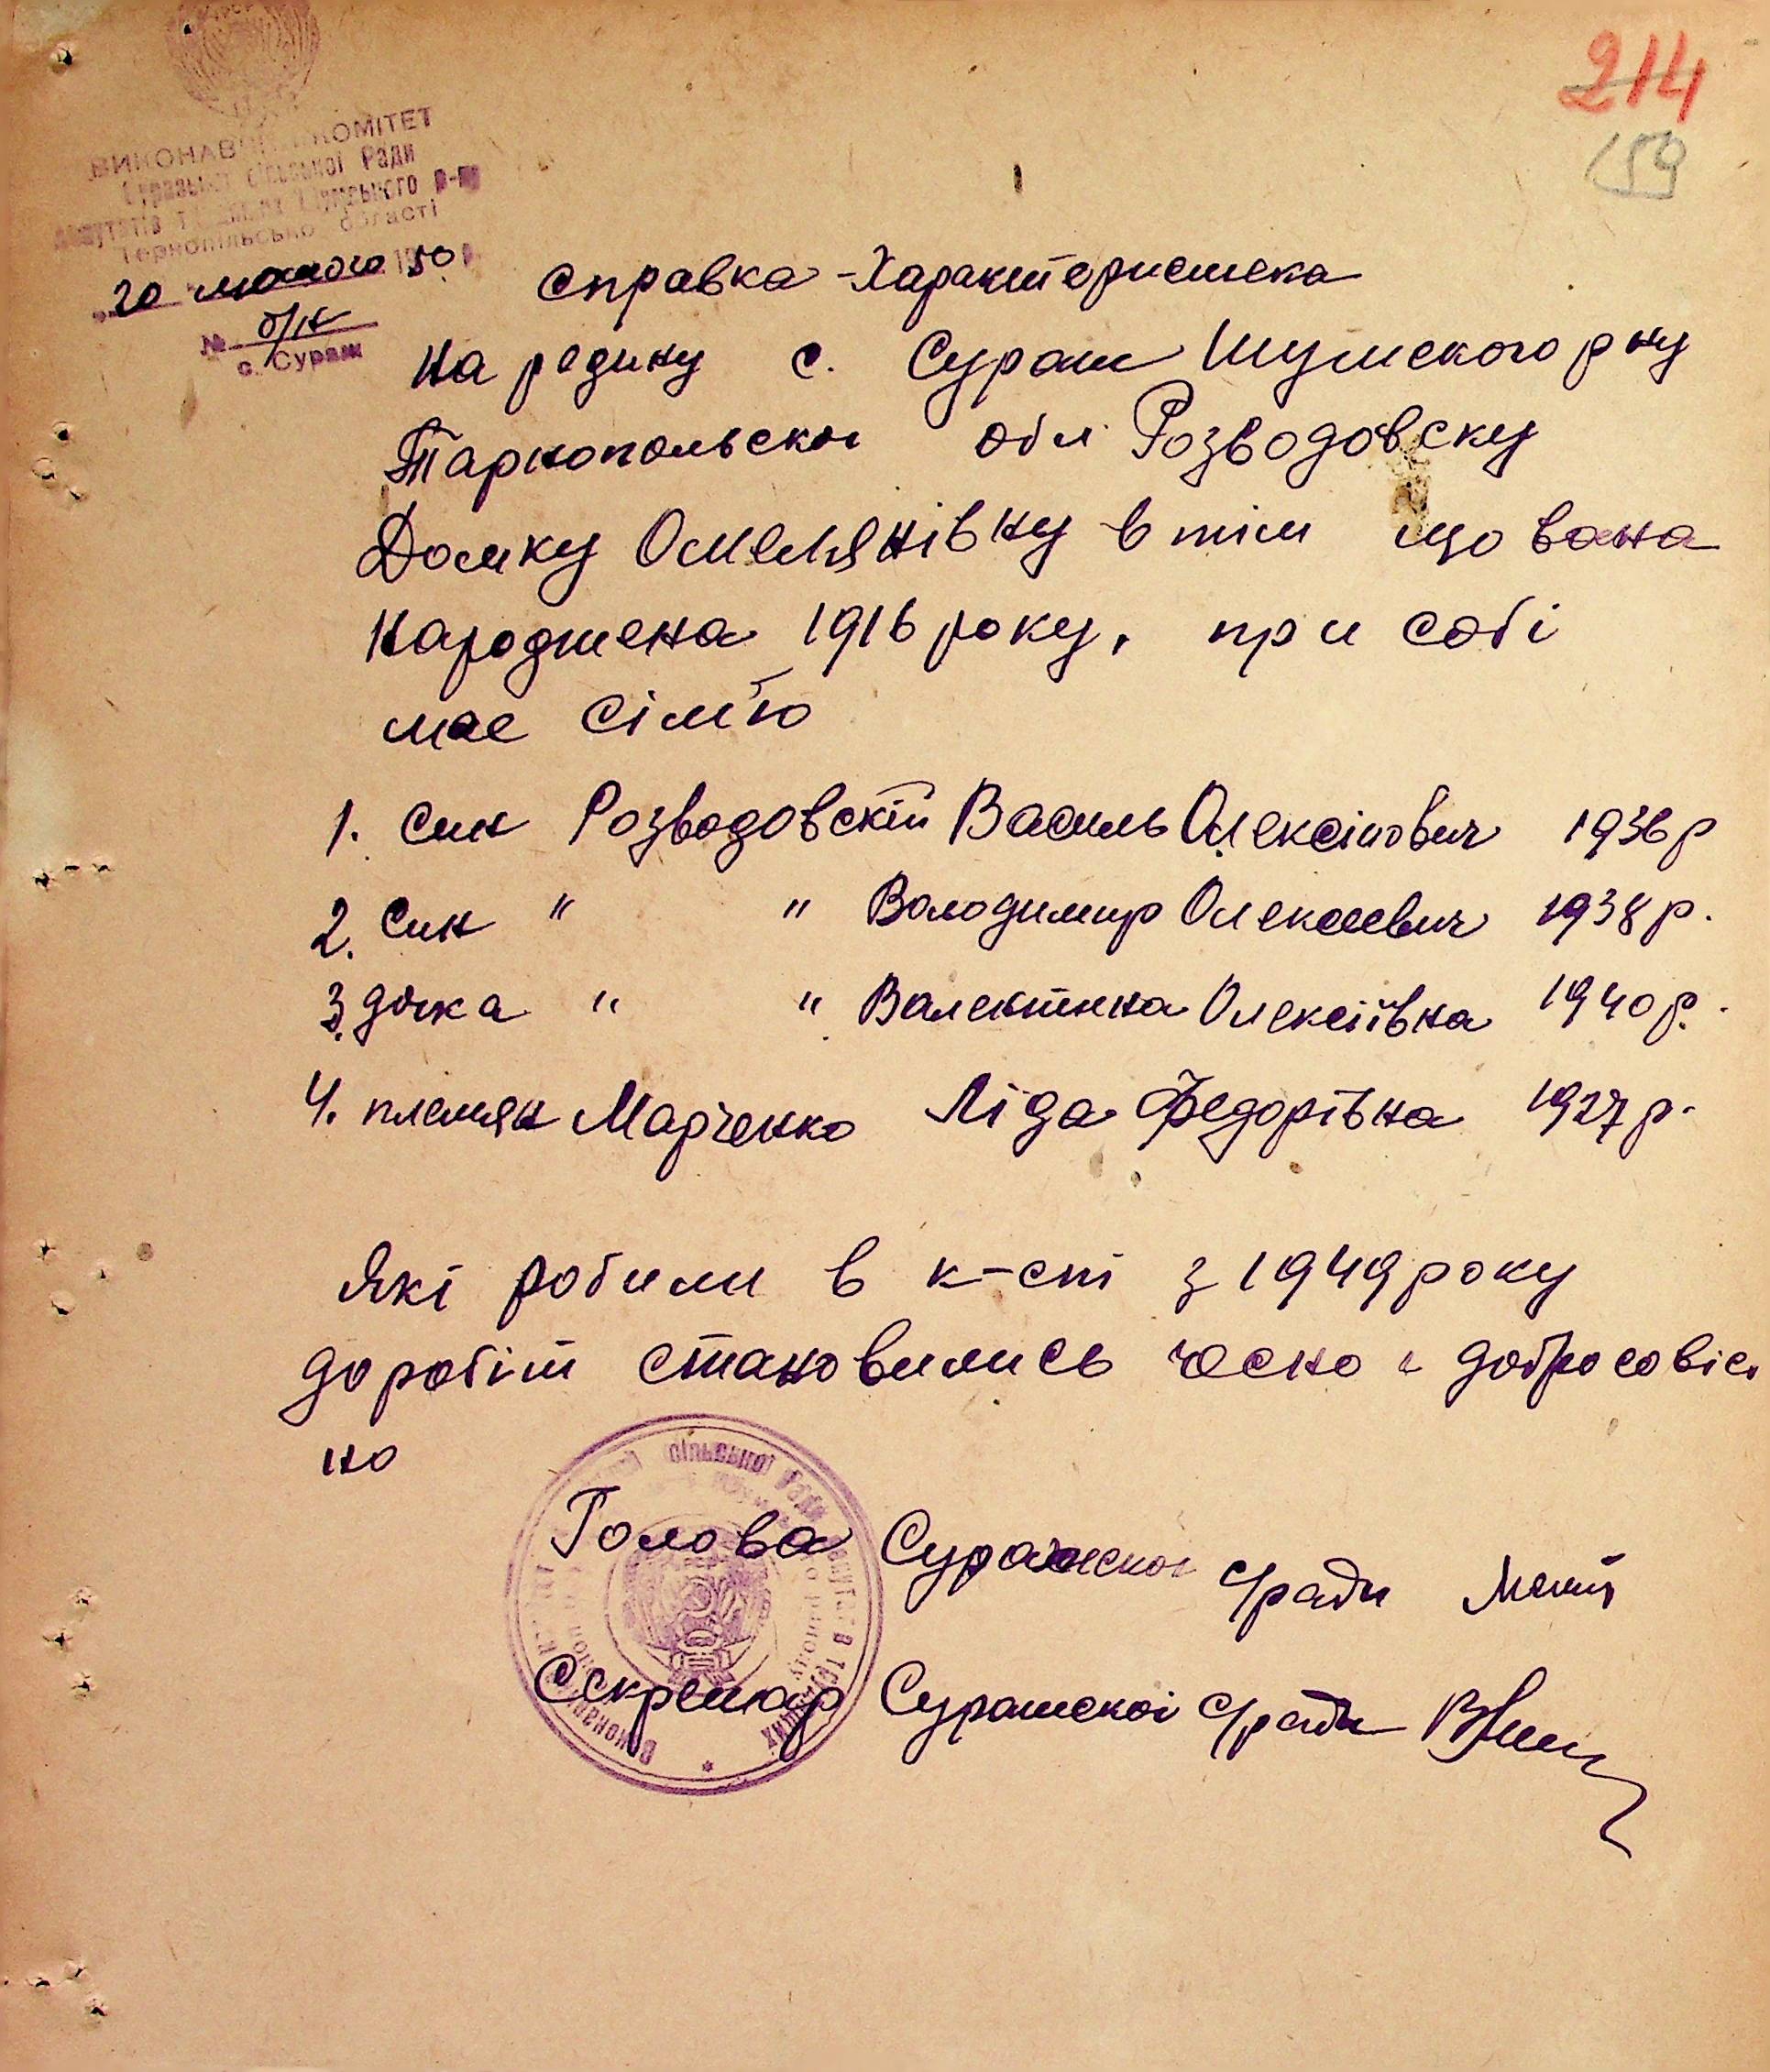 214
159
ВИКОНАВЧИЙ КОМІТЕТ
сільської Ради
депутатів Шумського р-ну
Тернопільської області
20 лютого 1950 р.
№ б/н
с. Сураж
Справка-Характеристека
на родину с. Сураж Шумского рну
Тарнопольскоі обл Розводовску
Домку Омелянівну в тім що вона
народжена 1916 року, при собі
має сімю
1. син Розводовскій Василь Олексійович 1936 р
2. син " " Володимир Олексієвич 1938 р.
3. дочка " " Валентина Олексіївна 1940 р.
4. племян Марченко Ліда Федорівна 1927 р.
Які робили в к-спі з 1949 року
до робіт становились чесно и добросовіс
но
Голова Суражскоі с/ради
Секретар Суражскоі с/ради
сільської Ради